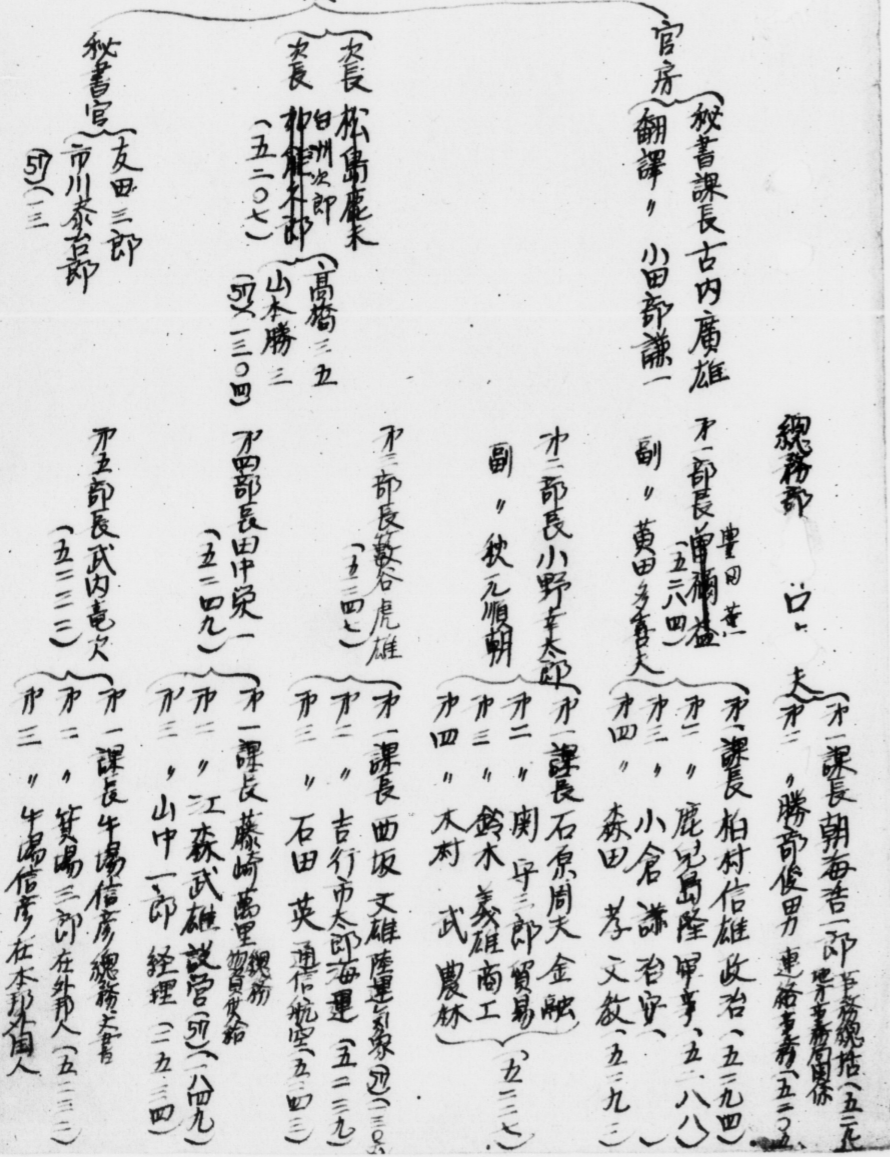 官房
秘書課長 古内廣雄
翻譯〃 小田部謙一
次長 松島鹿夫
白洲次郎
次長
(五二〇七)
高橋三五
山本勝三
(57)(一三〇四)
秘書官
友田三郎
市川泰治郎
(57)(一三
總務部
夫
才一課長 朝海浩一郎 事務總括(五二
地方事務局関係
才二〃 勝部俊男 連絡事務(五二〇五
豊田薫
才一部長 曽禰益
(五二八四)
副〃 黄田多喜夫
才一課長 柏村信雄 政治(五二九四)
才二〃 鹿児島隆 軍事(五二八八)
才三〃 小倉謙 治安( )
才四〃 森田孝 文教(五二九三)
才二部長 小野幸太郎
副〃 秋元順朝
才一課長 石原周夫 金融
才二〃 関守三郎 貿易
才三〃 鈴木義雄 商工
才四〃 木村武 農林
(五二二七)
才三部長 藪谷虎雄
(五二四七)
才一課長 西坂文雄 陸運気象(57)(一三〇
才二〃 吉行市太郎 海運(五二三九)
才三〃 石田英 通信航空(五二四三)
才四部長 田中栄一
(五二四九)
才一課長 藤崎萬里 總務
物資需給
才二〃 江森武雄 設営(57)(一八四九)
才三〃 山中一郎 経理(二五三四)
才五部長 武内竜次
(五二二二)
才一課長 牛場信彦 總務文書
才二〃 箕場三郎 在外邦人(五二三二)
才三〃 牛場信彦 在本邦外国人